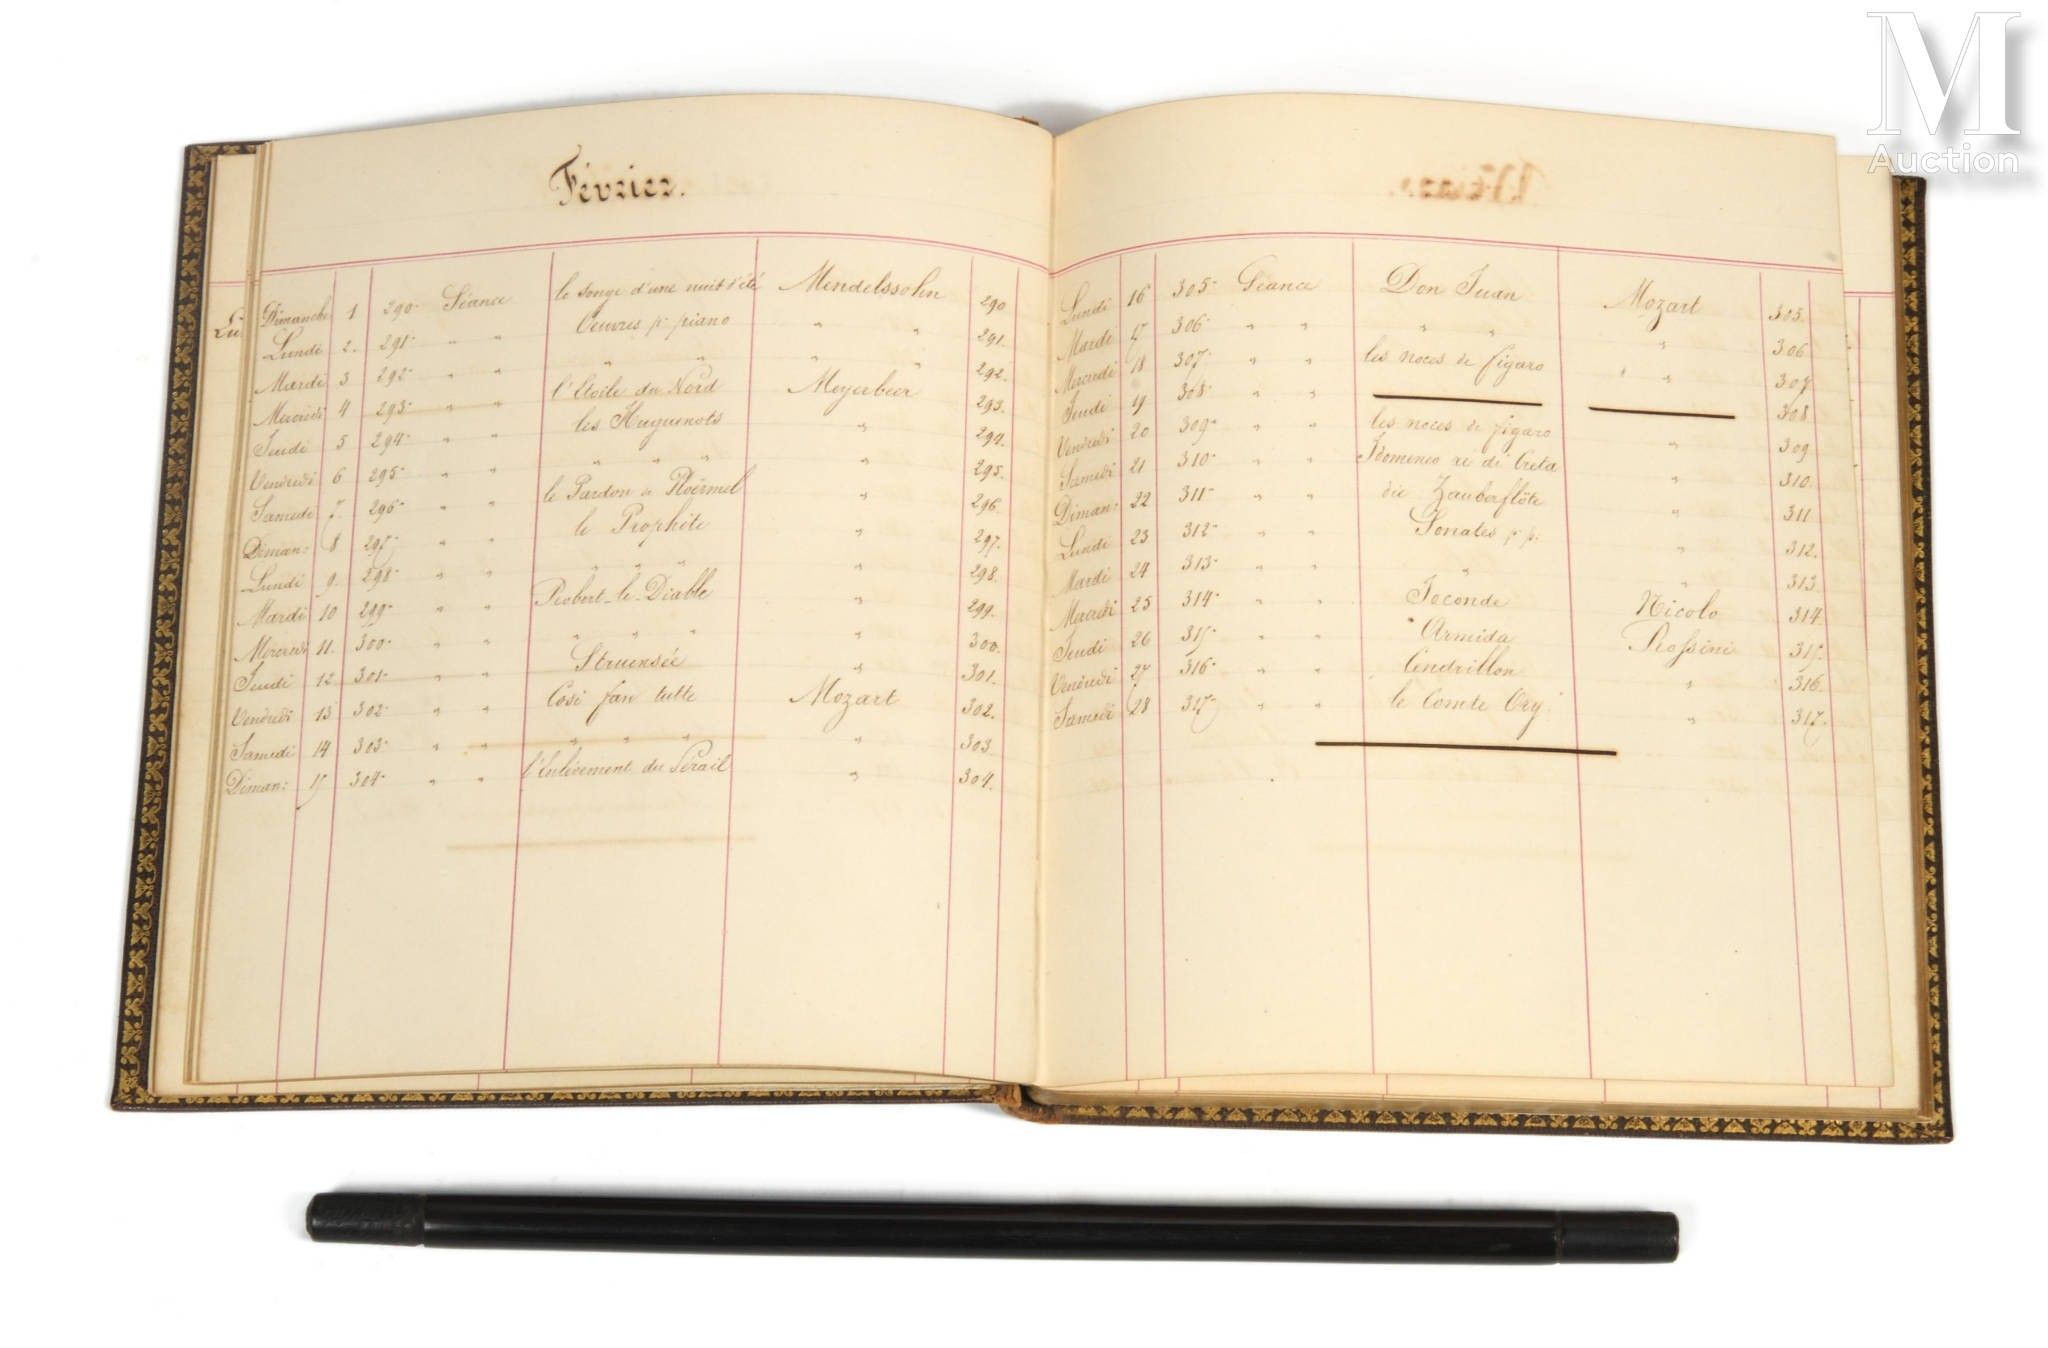 M
Auction
Février.
Lu
Dimanche 1 290 Séance le songe d'une nuit d'été Mendelssohn 290
Lundi 2. 291 " " Oeuvres pr piano " " 291.
Mardi 3 292 " " " " " " 292.
Mercredi 4 293 " " l'Etoile du Nord Meyerbeer 293.
Jeudi 5 294 " " les Huguenots " 294.
Vendredi 6 295 " " " " " " 295.
Samedi 7. 296 " " le Pardon de Ploërmel " 296.
Diman: 8 297 " " le Prophète " 297.
Lundi 9. 298 " " " " " " 298.
Mardi 10 299 " " Robert-le-Diable " 299.
Mercredi 11. 300 " " " " " " 300.
Jeudi 12 301 " " Struensée " 301.
Vendredi 13 302 " " Cosi fan tutte Mozart 302.
Samedi 14 303 " " " " " " 303
Diman: 15 304 " " l'Enlèvement du Sérail " 304.
Lundi 16 305 Séance Don Juan Mozart 305.
Mardi 17 306 " " " " " 306
Mercredi 18 307 " " les noces de figaro " 307
Jeudi 19 308 " " 308
Vendredi 20 309 " " les noces de figaro " 309
Samedi 21 310 " " Idomeneo ré di Creta " 310.
Diman: 22 311 " " die Zauberflöte " 311
Lundi 23 312 " " Sonates pr p: " 312.
Mardi 24 313 " " " " 313
Mercredi 25 314 " " Joconde Nicolo 314
Jeudi 26 315 " " Armida Rossini 315.
Vendredi 27 316 " " Cendrillon " 316.
Samedi 28 317 " " le Comte Ory " 317.